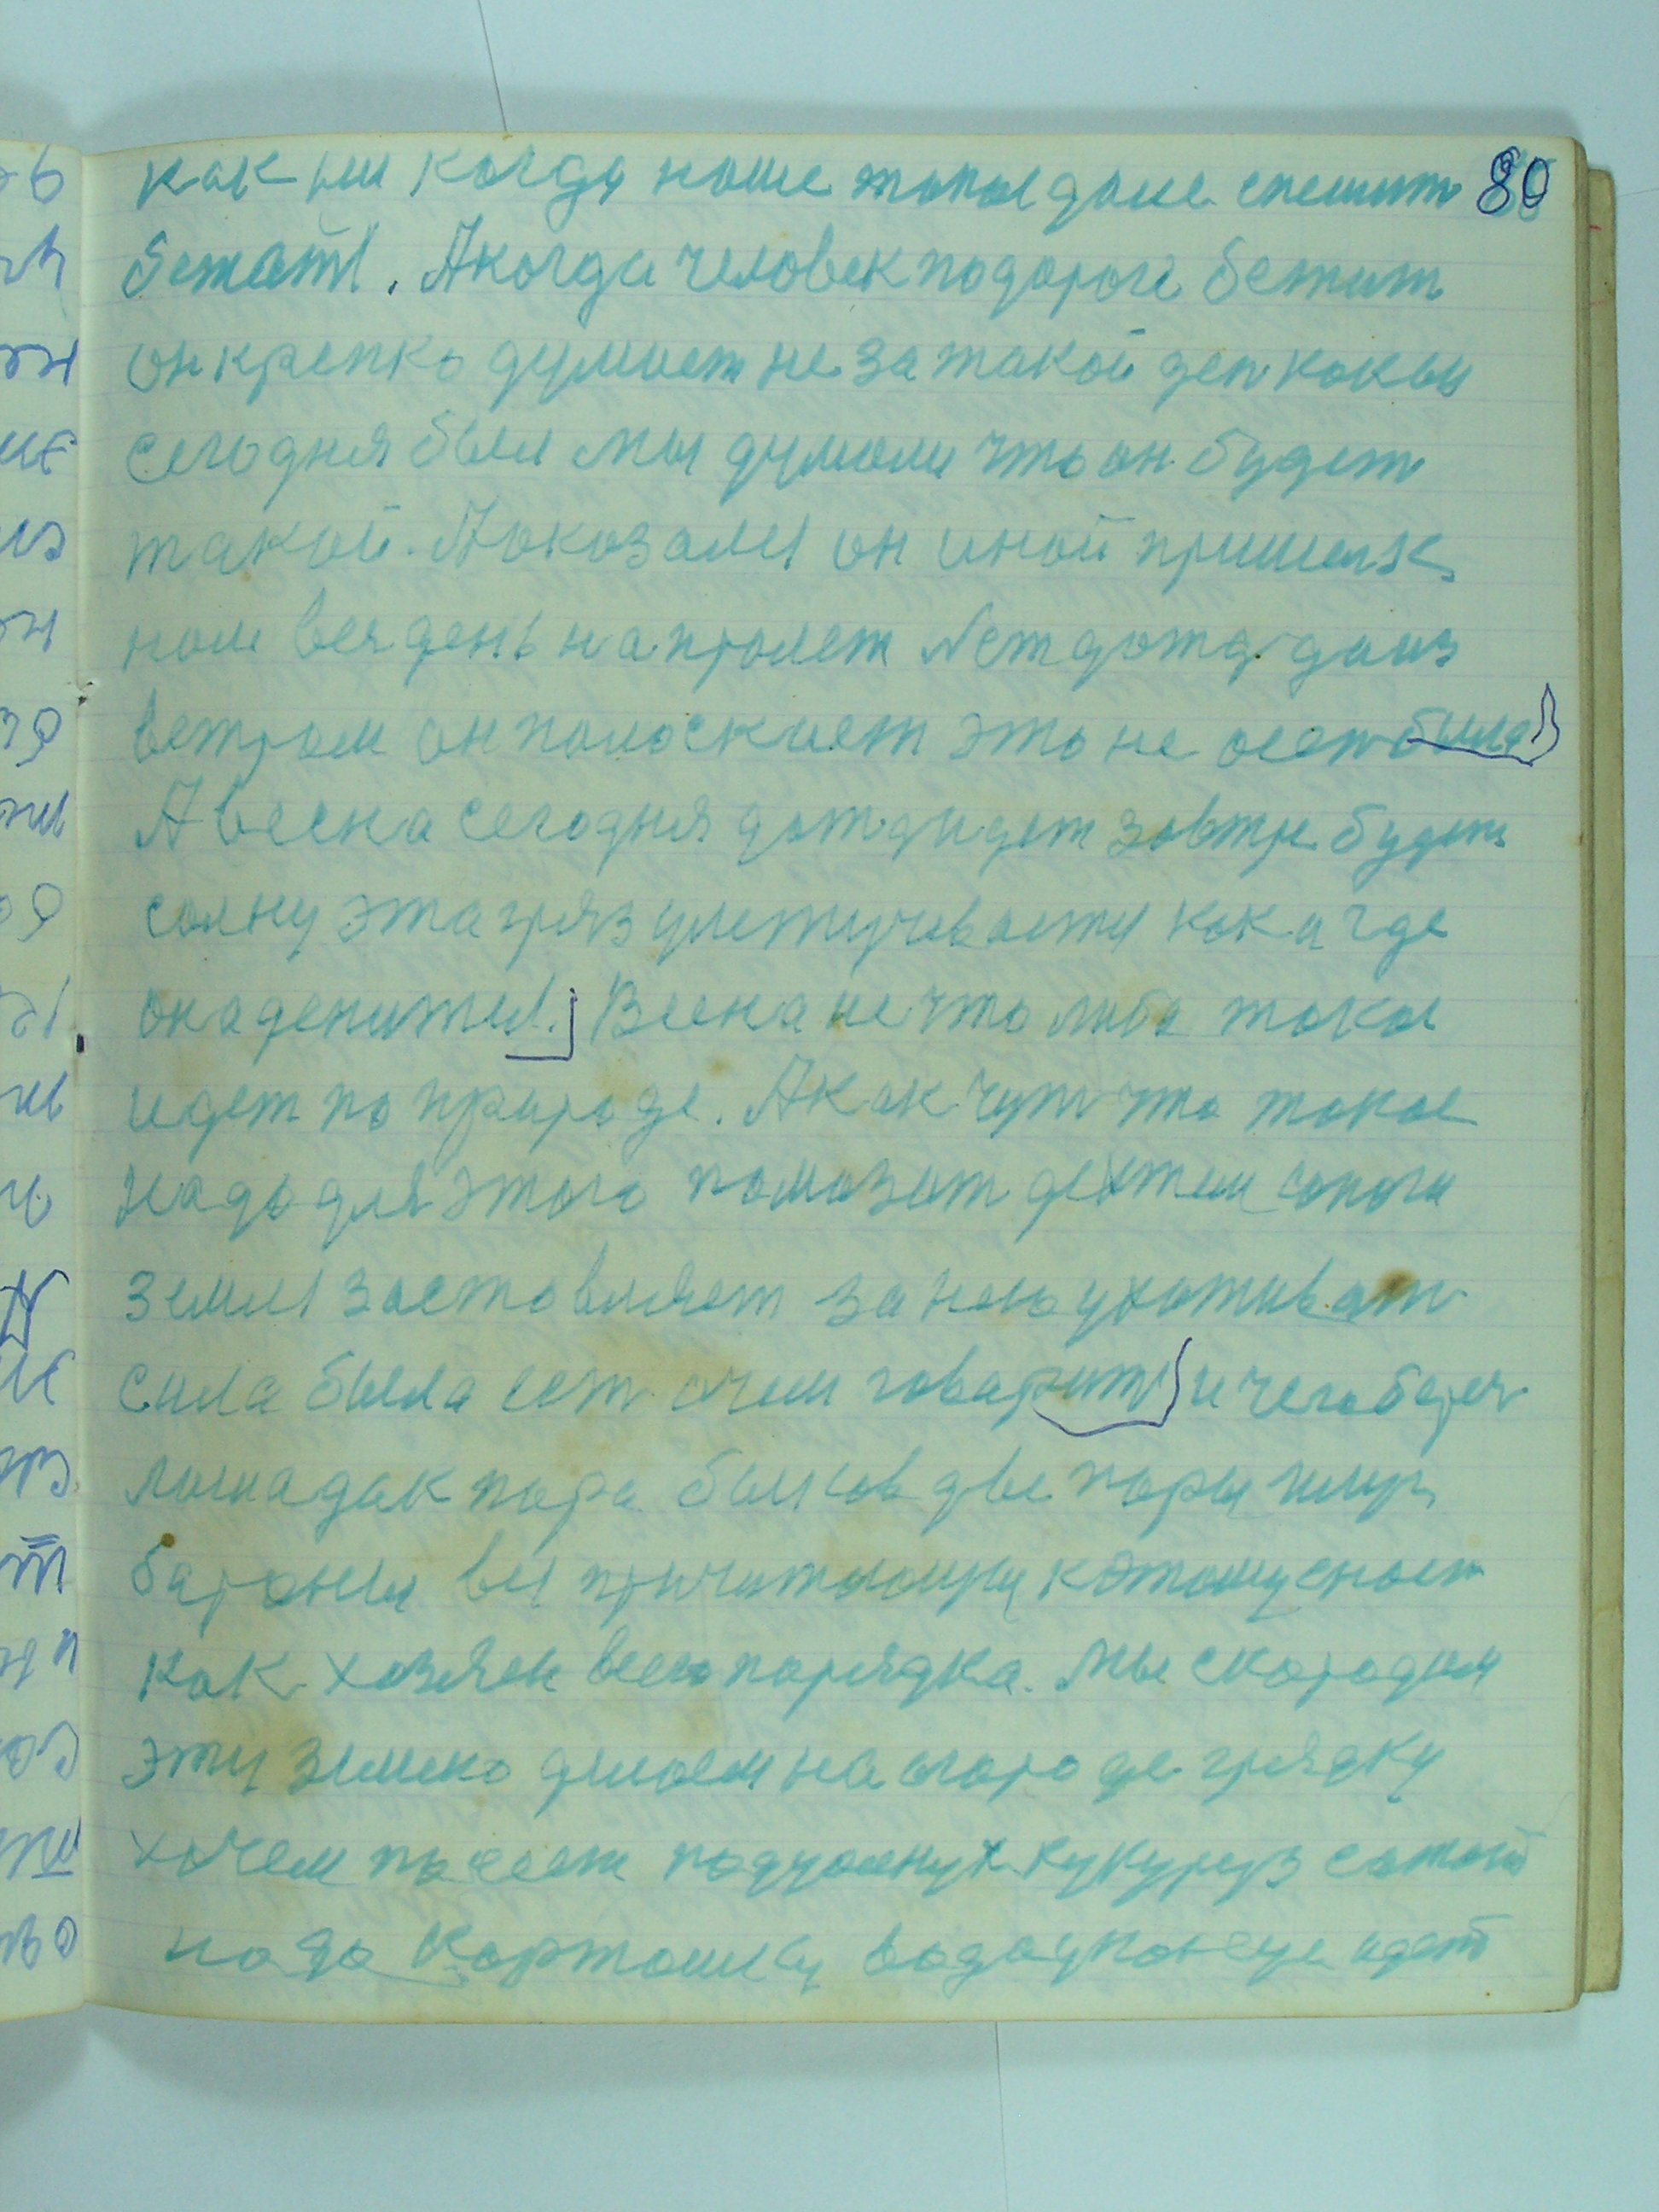 как ни когда наше такое даме спешит 80
бежат. А когда человек по дороге бежит
он крепко думает не за такой ден какой
сегодня был мы думали что он будет
такой. А оказался он иной пришел к
нам вся день напролет лет дожд даиз
ветром он полоскиет это не осен была
А весна сегодня дождидет завтре будет
солну эта гряз улетучиваетя как и где
она денитея. Веена не что либо такое
идет по природе. А как чут что такое
Надо для этого помазит дехтем сапоги
земля заставляет за нею ухаживат
сила была ест очем говарит и чего беря
лошадак пара быков две пары плуг
бароны вся причитающую к этому снаст
как хозяен всего порядка. Мы скородим
эту землю делаем на огороде грядку
хочем посеет подсолнух кукуруз сажат
надо картошку вода уконеце идет